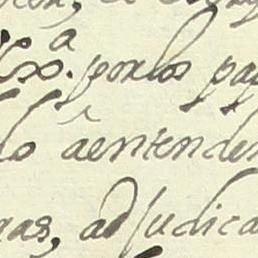 Exª. por los pa
lo âentender
ras, adjudica